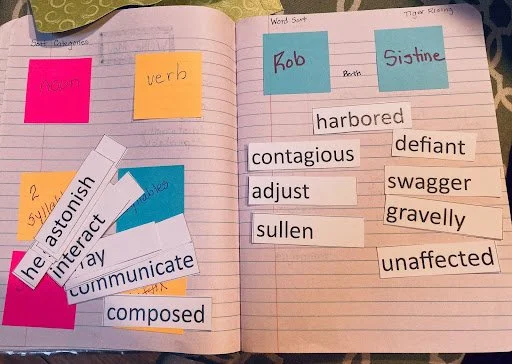 Sort Categories
noun
verb
2
syllab
ables
astonish
he
interact
ray
communicate
composed
Word Sort
Tiger Rising
Rob
Both
Sistine
harbored
contagious
defiant
adjust
swagger
sullen
gravelly
unaffected